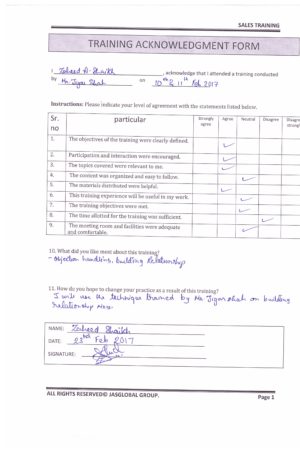 SALES TRAINING
TRAINING ACKNOWLEDGMENT FORM
I Zaheed A. Shaikh, acknowledge that I attended a training conducted
by Mr. Jigar Shah on 10th & 11th Feb 2017
Instructions: Please indicate your level of agreement with the statements listed below.
Sr. no particular Strongly agree Agree Neutral Disagree Disagree strongly
1. The objectives of the training were clearly defined.
2. Participation and interaction were encouraged.
3. The topics covered were relevant to me.
4. The content was organized and easy to follow.
5. The materials distributed were helpful.
6. This training experience will be useful in my work.
7. The training objectives were met.
8. The time allotted for the training was sufficient.
9. The meeting room and facilities were adequate
and comfortable.
10. What did you like most about this training?
- objection handling, building Relationship
11. How do you hope to change your practice as a result of this training?
I will use the technique trained by Mr Jigar shah on building
relationship
NAME: Zaheed Shaikh
DATE: 23rd Feb 2017
SIGNATURE:
ALL RIGHTS RESERVED© JASGLOBAL GROUP.
Page 1